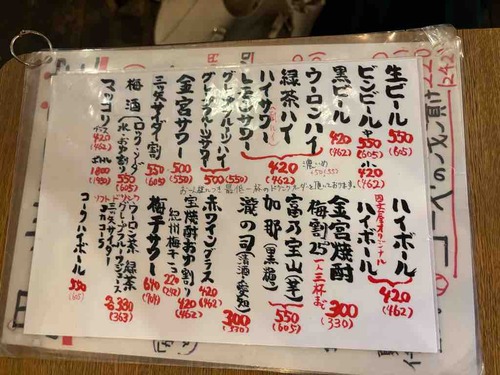 生ビール 550 (605)
ビンビール 中 550 (605) 小 420 (462)
黒ビール 420 (462)
ウーロンハイ
緑茶ハイ
ハイサワー
レモンサワー
420 (462)
濃いめ +50(55)
グレープフルーツハイ
グレープフルーツサワー
500 (550)
金宮サワー 500 (550)
三ツ矢サイダー割 550 (605)
梅酒 (ロック・ソーダ 水・お湯割り) 550 (605)
マッコリ グラス 420 (462) ボトル 1800
お一人様につき最低一杯のドリンクオーダーを頂いております。
ハイボール 420 (462)
ハイボール
金宮焼酎 300 (330)
梅割25° 一人三杯まで
富乃宝山(芋)
加那(黒糖)
550 (605)
瀧の司(清酒・愛知) 300 (330)
赤ワイングラス 420 (462)
宝焼酎お湯割り 420 (462)
紀州梅干一コ 220 (242)
梅干サワー 640 (704)
ソフトドリンク
ウーロン茶 緑茶
グレープフルーツジュース
三ツ矢サイダー
コカコーラ
各330 (363)
コークハイボール 550 (605)